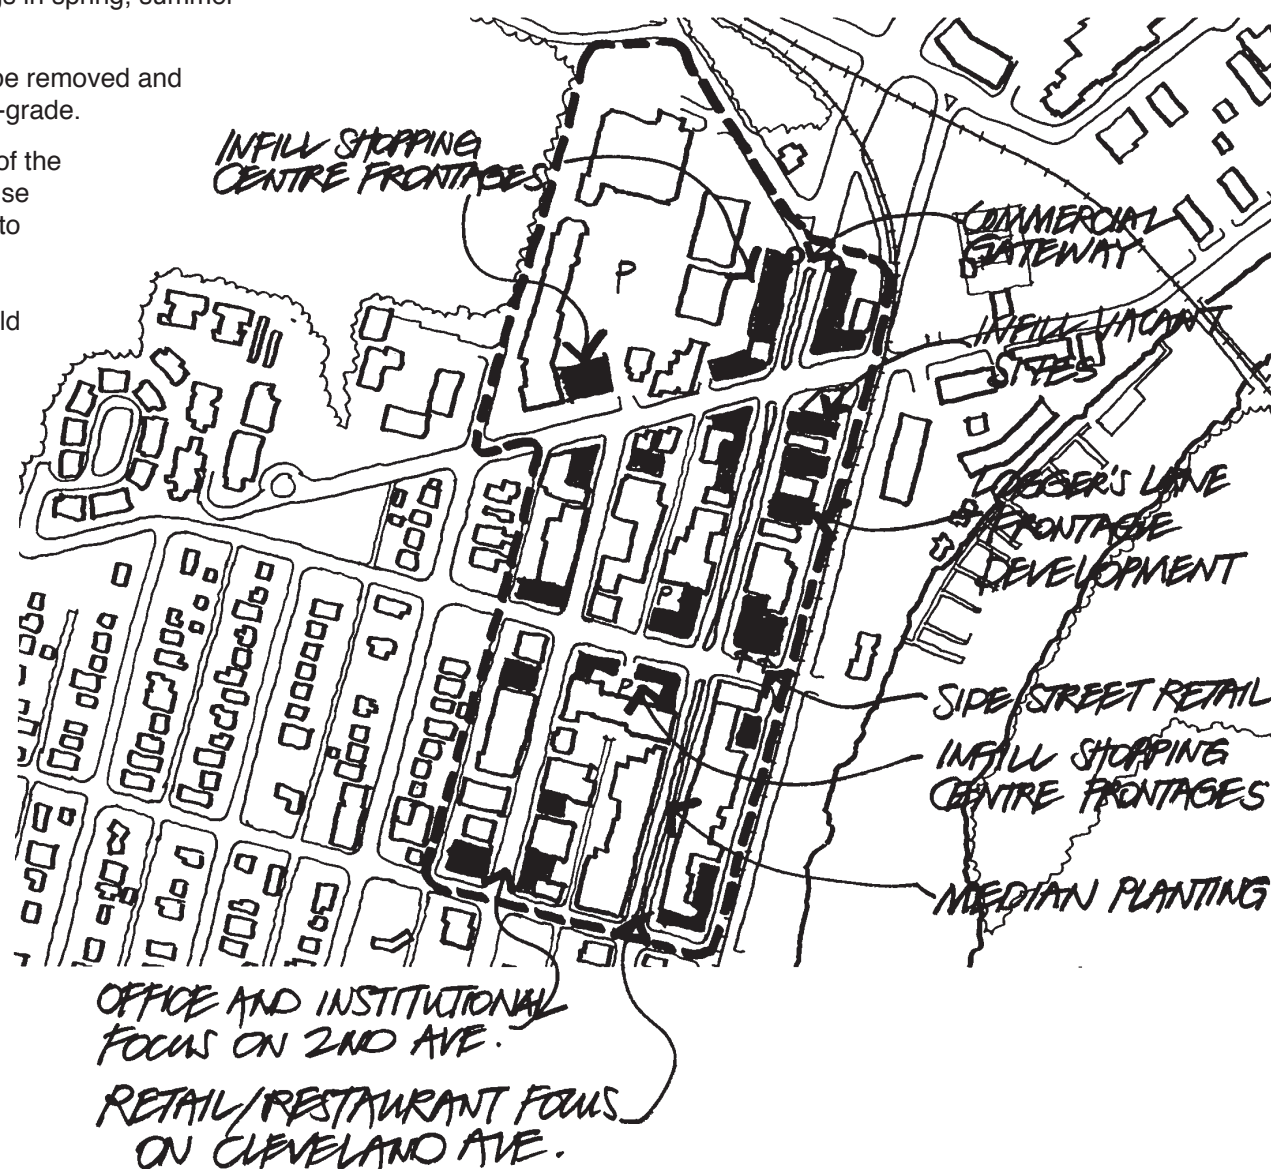 gs in spring, summer
be removed and
-grade.
of the
se
to
ld
INFILL SHOPPING
CENTRE FRONTAGES
COMMERCIAL
GATEWAY
P
INFILL VACANT
SITES
LOGGER'S LANE
FRONTAGE
DEVELOPMENT
P
SIDE STREET RETAIL
P
INFILL SHOPPING
CENTRE FRONTAGES
MEDIAN PLANTING
OFFICE AND INSTITUTIONAL
FOCUS ON 2ND AVE.
RETAIL/RESTAURANT FOCUS
ON CLEVELAND AVE.